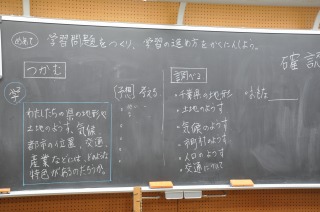 めあて 学習問題をつくり、学習の進め方をかくにんしよう。
つかむ
学
わたしたちの県の地形や
土地のようす、気候
都市の位置、交通、
産業などには、どのような
特色があるのだろうか。
予想
調べる
・千葉県の地形
・土地のようす
・気候のようす
・人口のようす
・交通について
確認